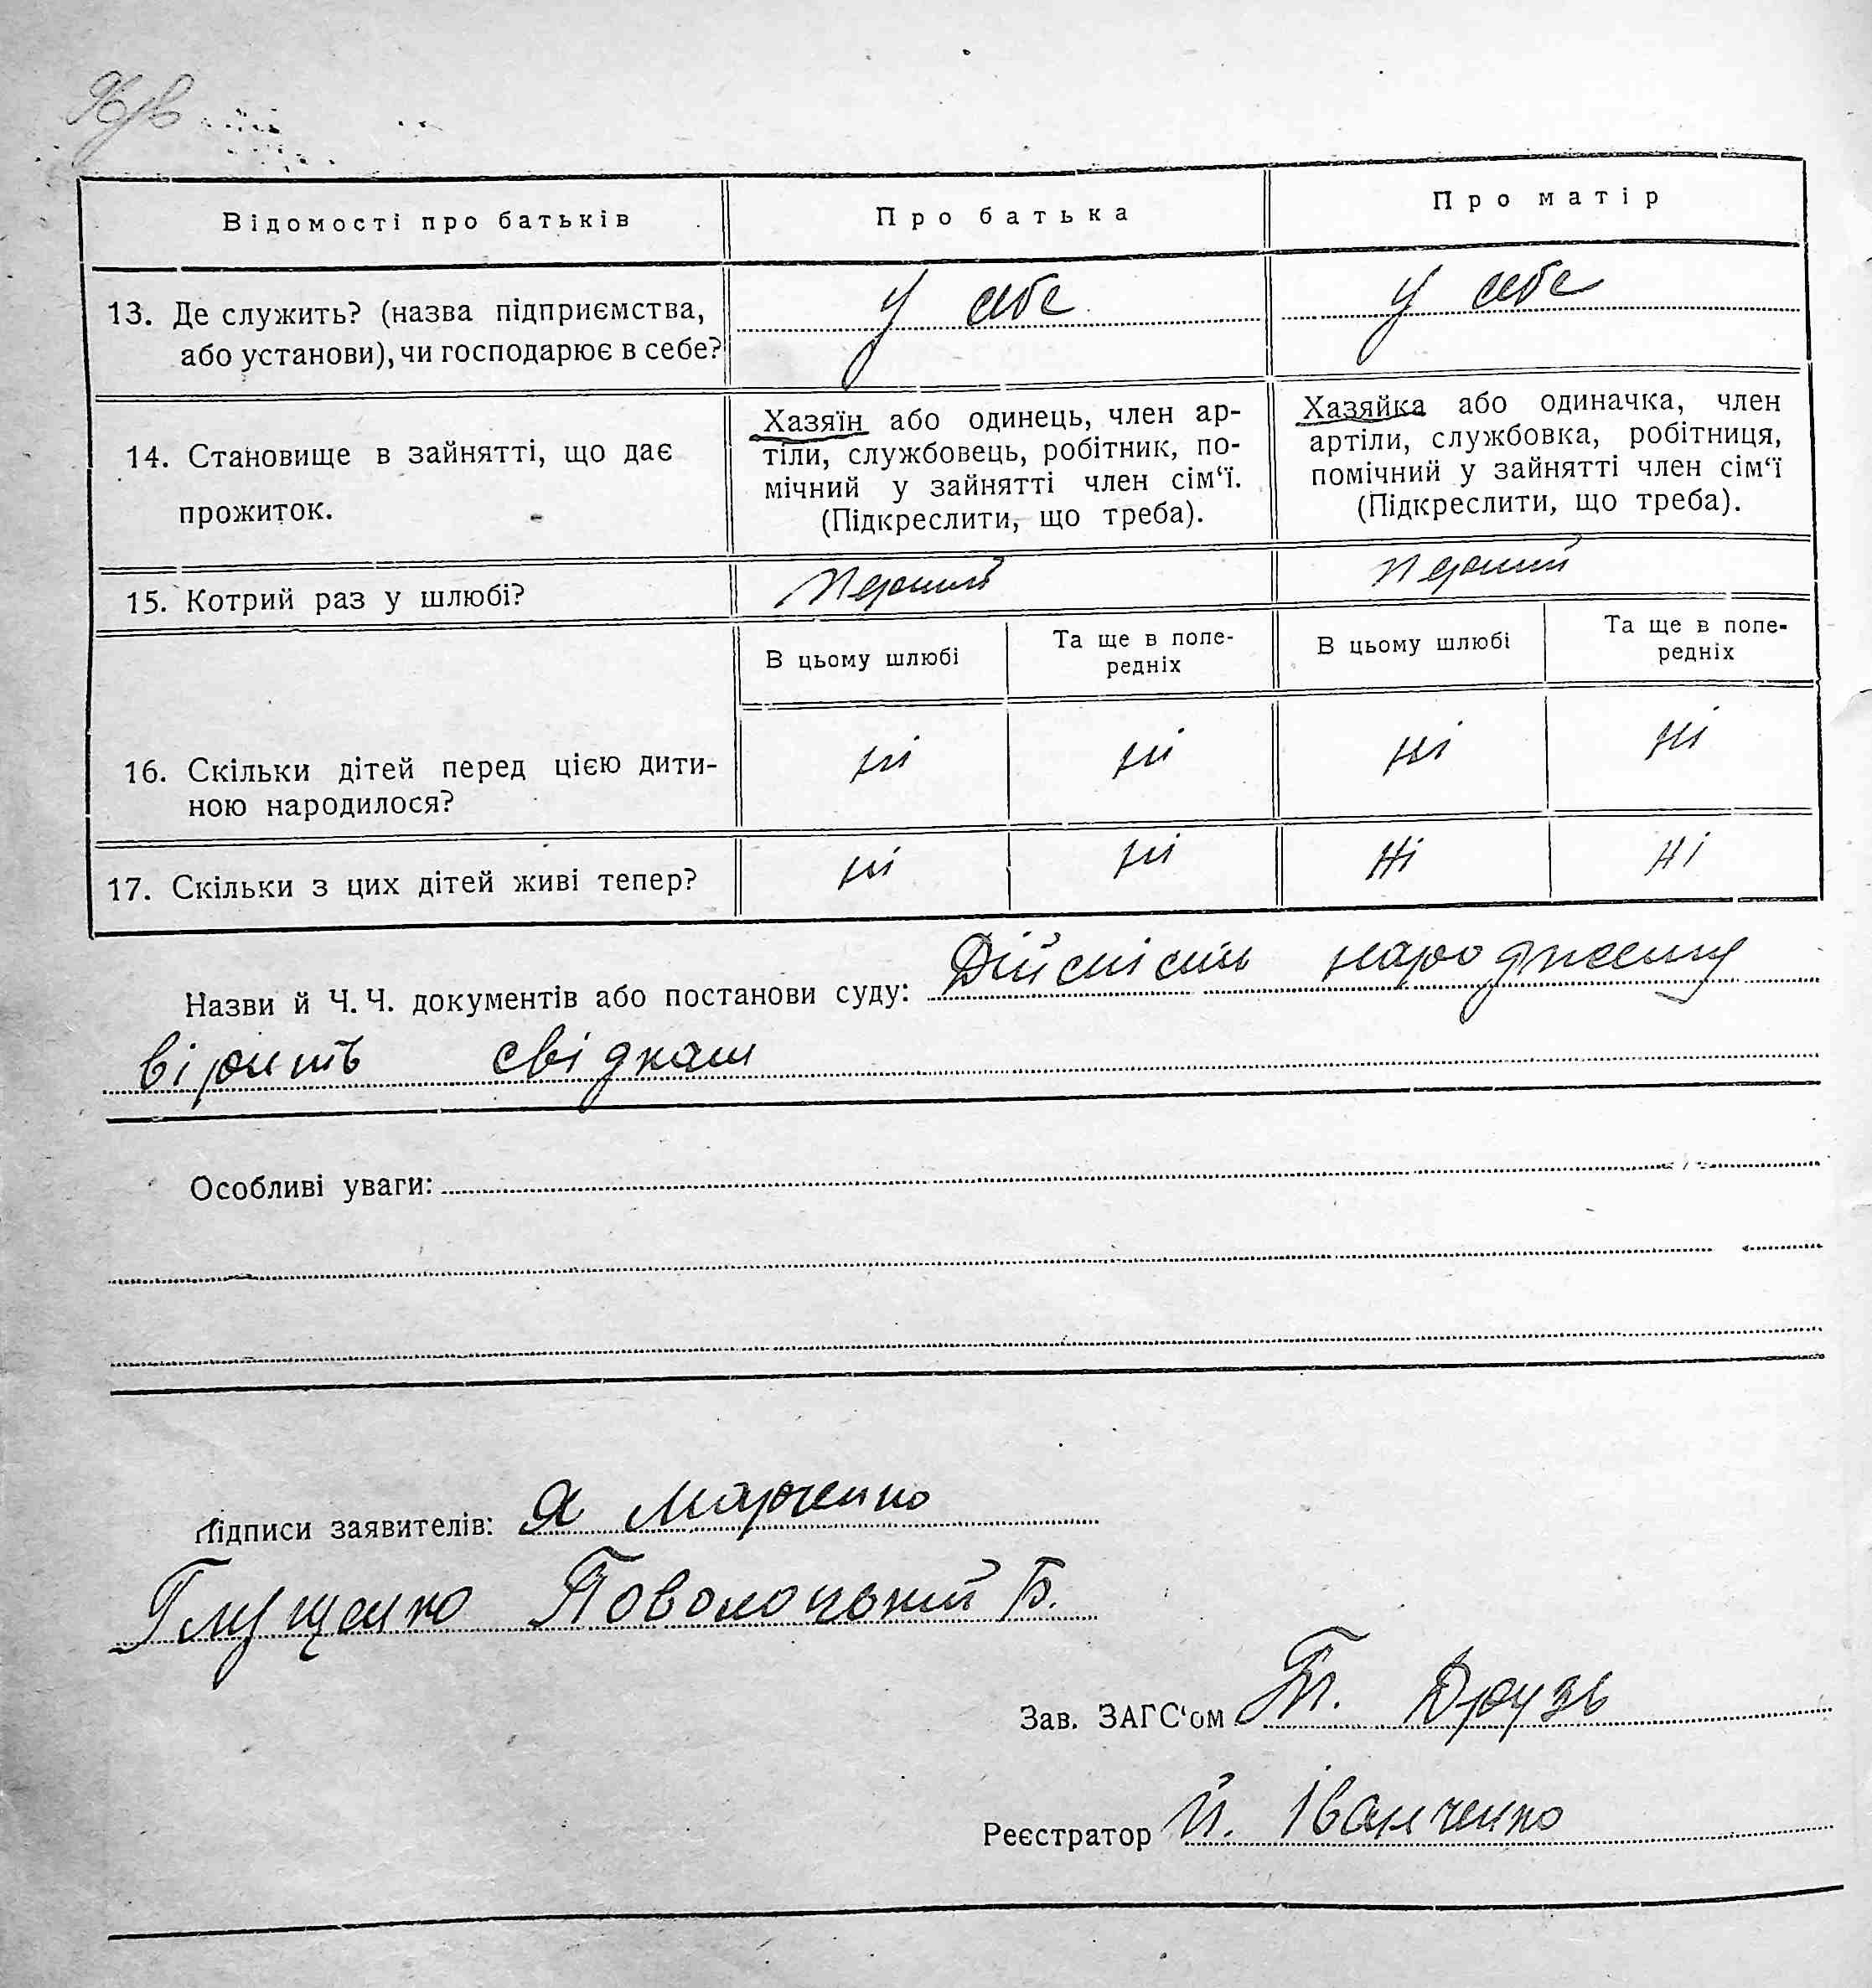 Відомості про батьків
Про батька
Про матір
13. Де служить? (назва підприємства,
або установи), чи господарює в себе?
у себе
у себе
14. Становище в зайнятті, що дає
прожиток.
Хазяїн або одинець, член ар-
тіли, службовець, робітник, по-
мічний у зайнятті член сім‘ї.
(Підкреслити, що треба).
Хазяйка або одиначка, член
артіли, службовка, робітниця,
помічний у зайнятті член сім‘ї
(Підкреслити, що треба).
15. Котрий раз у шлюбі?
перший
перший
В цьому шлюбі
Та ще в попе-
редніх
В цьому шлюбі
Та ще в попе-
редніх
16. Скільки дітей перед цією дити-
ною народилося?
ні
ні
ні
ні
17. Скільки з цих дітей живі тепер?
ні
ні
ні
ні
Назви й Ч. Ч. документів або постанови суду: Дійсність народженню
вірить свідкам
Особливі уваги:
Підписи заявителів: Я Марченко
Глущенко Поволоцький Б.
Зав. ЗАГС‘ом П. Друзь
Реєстратор Й. Іванченко